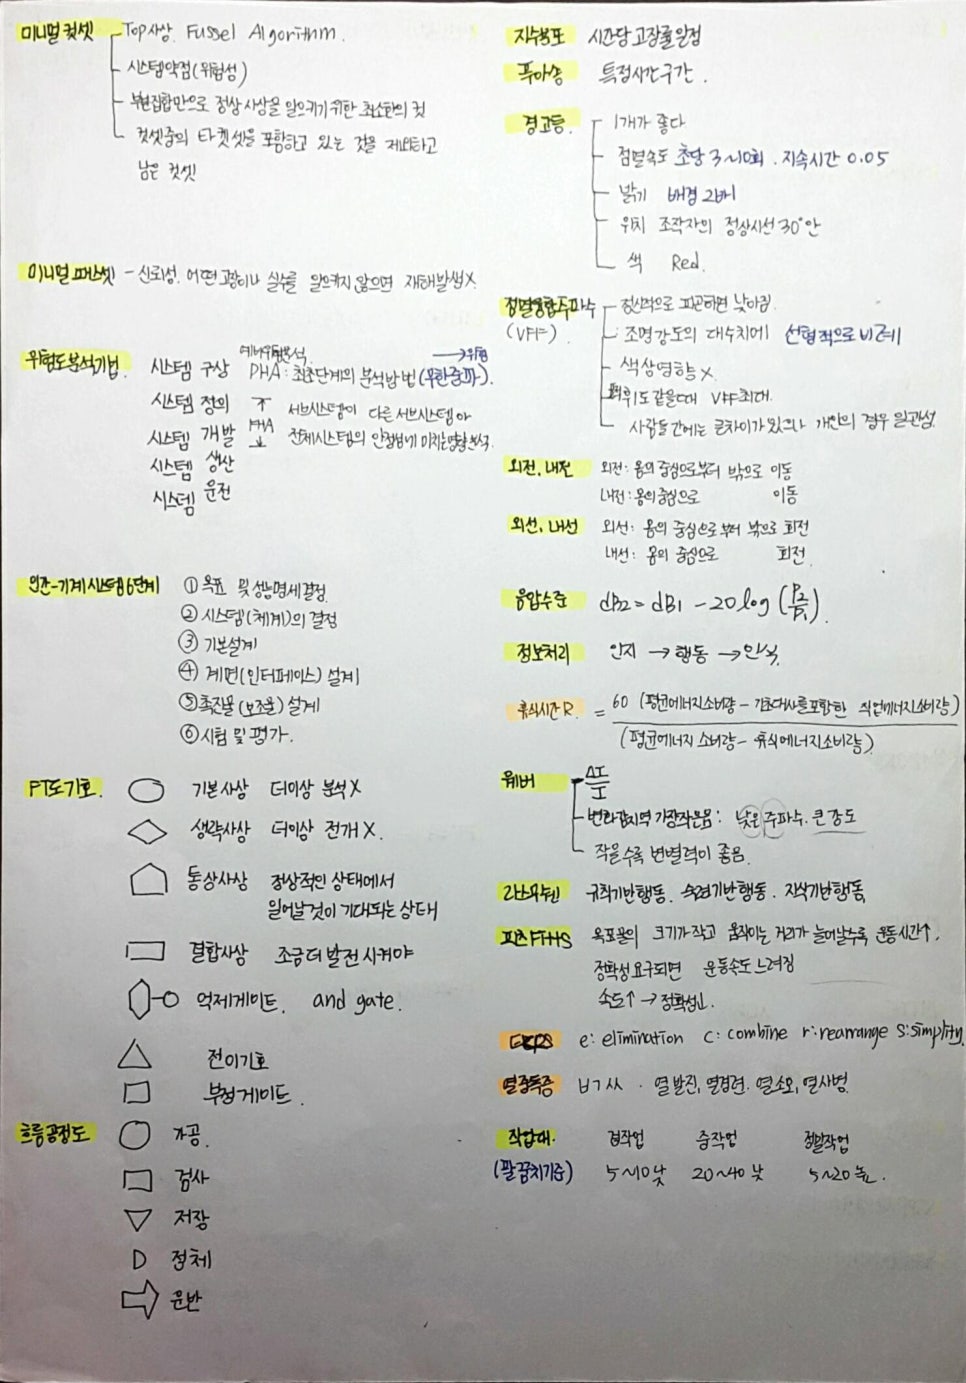 미니멀 컷셋 - Top사상. Fussel Algorithm.
- 시스템약점(위험성)
- 부분집합만으로 정상사상을 일으키기 위한 최소한의 컷
- 컷셋중의 타컷셋을 포함하고 있는 것을 제외하고
남은 컷셋
미니멀 패스셋 - 신뢰성. 어떤고장이나 실수를 일으키지 않으면 재해발생X.
위험도분석기법. 시스템 구상 예비위험분석.
PHA: 최초단계의 분석방법 (무한중파). → 위험
시스템 정의 ↑ 서브시스템이 다른 서브시스템이나
시스템 개발 FHA ↓ 전체시스템의 안전성에 미치는영향분석.
시스템 생산
시스템 운전
인간-기계시스템6단계 ① 목표 및 성능명세결정
② 시스템(체계)의 결정
③ 기본설계
④ 계면(인터페이스) 설계
⑤ 촉진물(보조물) 설계
⑥ 시험 및 평가.
FT도기호. 기본사상 더이상 분석X
생략사상 더이상 전개X.
통상사상 정상적인 상태에서
일어날것이 기대되는 상태
결합사상 조금더 발전시켜야
억제게이트. and gate.
전이기호
부정게이트.
흐름공정도 가공.
검사
저장
정체
운반
지수분포 시간당 고장률일정
푸아송 특정시간구간.
경고등. - 1개가 좋다
- 점멸속도 초당 3~10회. 지속시간 0.05
- 밝기 배경 2배
- 위치 조작자의 정상시선 30°안
- 색 Red.
점멸융합주파수 - 정신적으로 피곤하면 낮아짐.
(VFF) - 조명강도의 대수치에 선형적으로 비례
- 색상영향X.
- 휘도같을때 VFF최대.
- 사람들간에는 큰차이가있으나 개인의 경우 일관성.
외전, 내전 외전: 몸의 중심으로부터 밖으로 이동
내전: 몸의중심으로 이동
외선, 내선 외선: 몸의 중심으로부터 밖으로 회전
내선: 몸의 중심으로 회전
음압수준 dB2 = dB1 - 20log (P2/P1).
정보처리 인지 → 행동 → 인식.
휴식시간R. = 60 (평균에너지소비량 - 기초대사를포함한 작업에너지소비량) / (평균에너지 소비량 - 휴식에너지소비량)
웨버 - ΔI/I
- 변화감지역 가장작은음: 낮은 주파수. 큰 강도
- 작을수록 변별력이 좋음.
라스무센 규칙기반행동. 숙련기반행동. 지식기반행동.
피츠 Fitts 목표물의 크기가작고 움직이는 거리가 늘어날수록 운동시간↑.
정확성요구되면 운동속도 느려짐
속도↑ → 정확성↓.
ECRS e: elimination c: combine r: rearrange s: simplity.
열중독증 ㅂㄱㅆ. 열발진, 열경련. 열소모, 열사병.
작업대. 경작업 중작업 정밀작업
(팔꿈치기준) 5~10낮 20~40낮 5~20높.